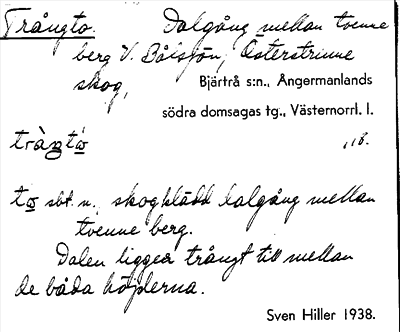 Trångto. Dalgång mellan tvenne
berg V. Bålsjön, Österstrinne
skog,
Bjärtrå s:n., Ångermanlands
södra domsagas tg., Västernorrl. l.
tràŋtω´
to sbt. n., skogklädd dalgång mellan
tvenne berg.
Dalen ligger trångt till mellan
de båda höjderna.
Sven Hiller 1938.